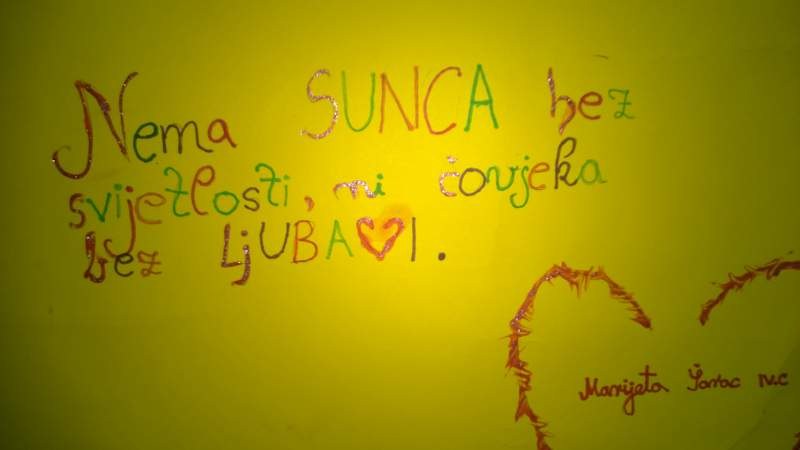 Nema SUNCA bez
svijetlosti, ni čovjeka
bez LjUBA♥I.
Marijeta Šarac IV.C